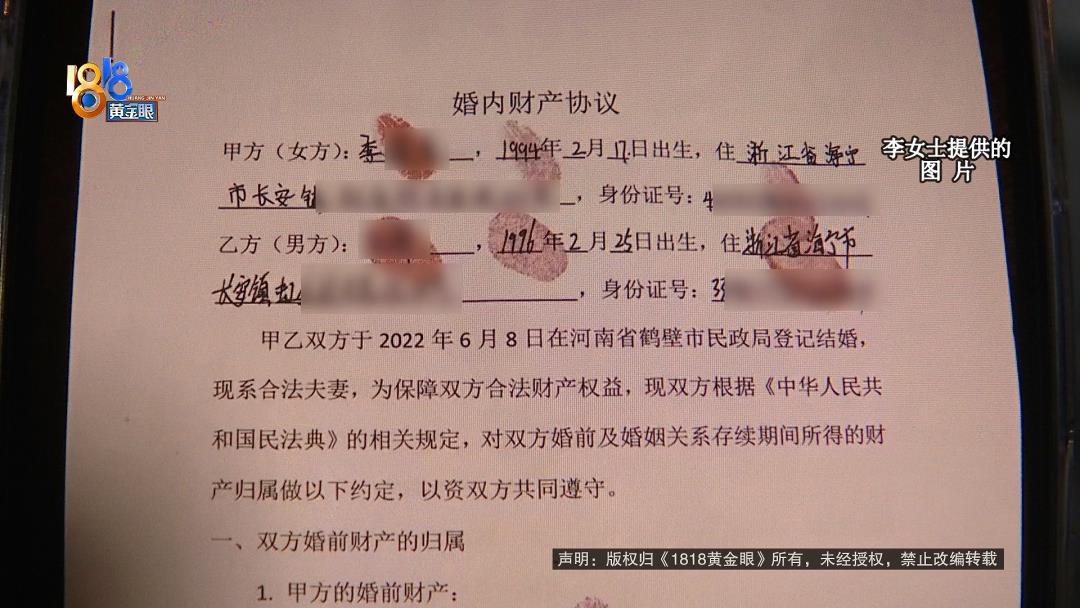 1818
HUANG JIN YAN
黄金眼
婚内财产协议
甲方（女方）：李 ，1994年2月17日出生，住 浙江省海宁
市长安镇 ，身份证号：4
李女士提供的
图 片
乙方（男方）： ，1996年2月25日出生，住浙江省海宁市
长安镇 ，身份证号：3
甲乙双方于 2022 年 6 月 8 日在河南省鹤壁市民政局登记结婚，
现系合法夫妻，为保障双方合法财产权益，现双方根据《中华人民共
和国民法典》的相关规定，对双方婚前及婚姻关系存续期间所得的财
产归属做以下约定，以资双方共同遵守。
一、双方婚前财产的归属
1. 甲方的婚前财产：
声明：版权归《1818黄金眼》所有，未经授权，禁止改编转载